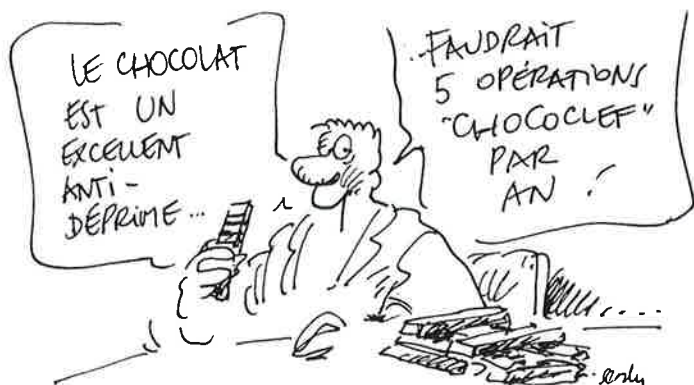 LE CHOCOLAT
EST UN
EXCELLENT
ANTI-
DÉPRIME...
...FAUDRAIT
5 OPÉRATIONS
"CHOCOCLEF"
PAR
AN !